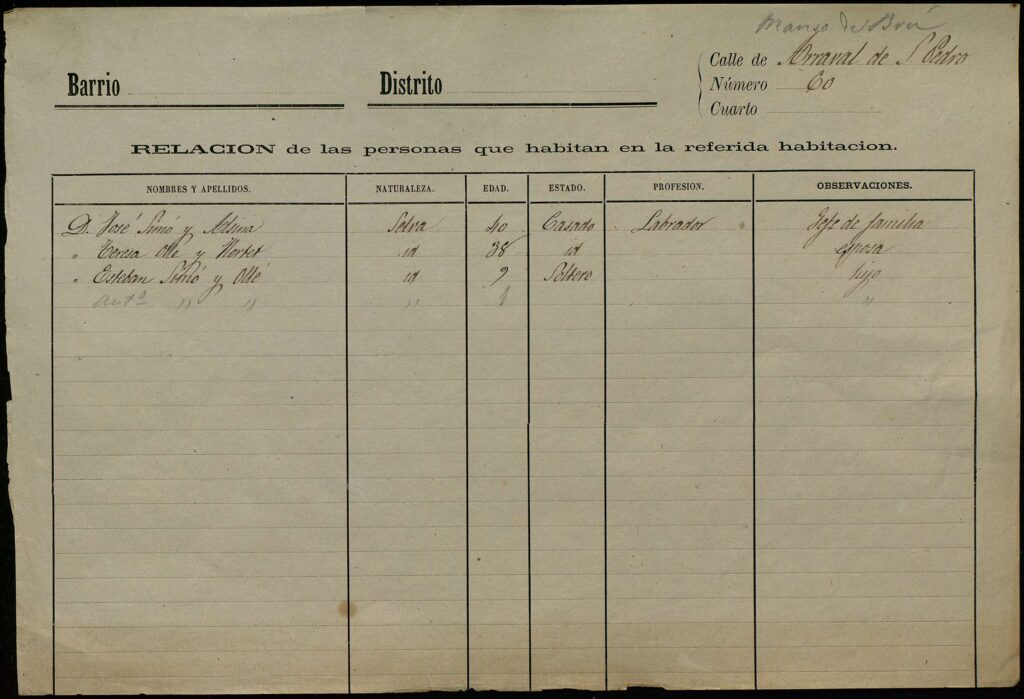 Manso de Brú
Calle de Arraval de S Pedro
Barrio Distrito Número 60
Cuarto
RELACION de las personas que habitan en la referida habitacion.
NOMBRES Y APELLIDOS. NATURALEZA. EDAD. ESTADO. PROFESION. OBSERVACIONES.
D. José Simó y Alsina Selva 40 Casado Labrador Gefe de familia
" Teresa Ollé y Hortet id 38 id esposa
" Esteban Simó y Ollé id 9 Soltero hijo
Antº " " " "